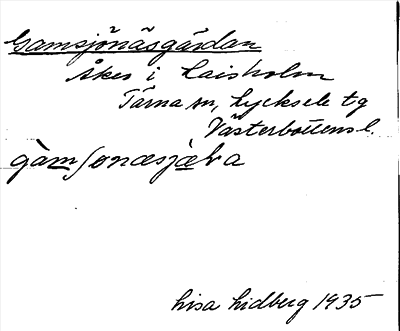 Gamsjönäsgärdan
åker i Laisholm
Tärna sn, Lycksele tg
Västerbottens l.
gàmſonæsjæ̀ɽa
Lisa Lidberg 1935